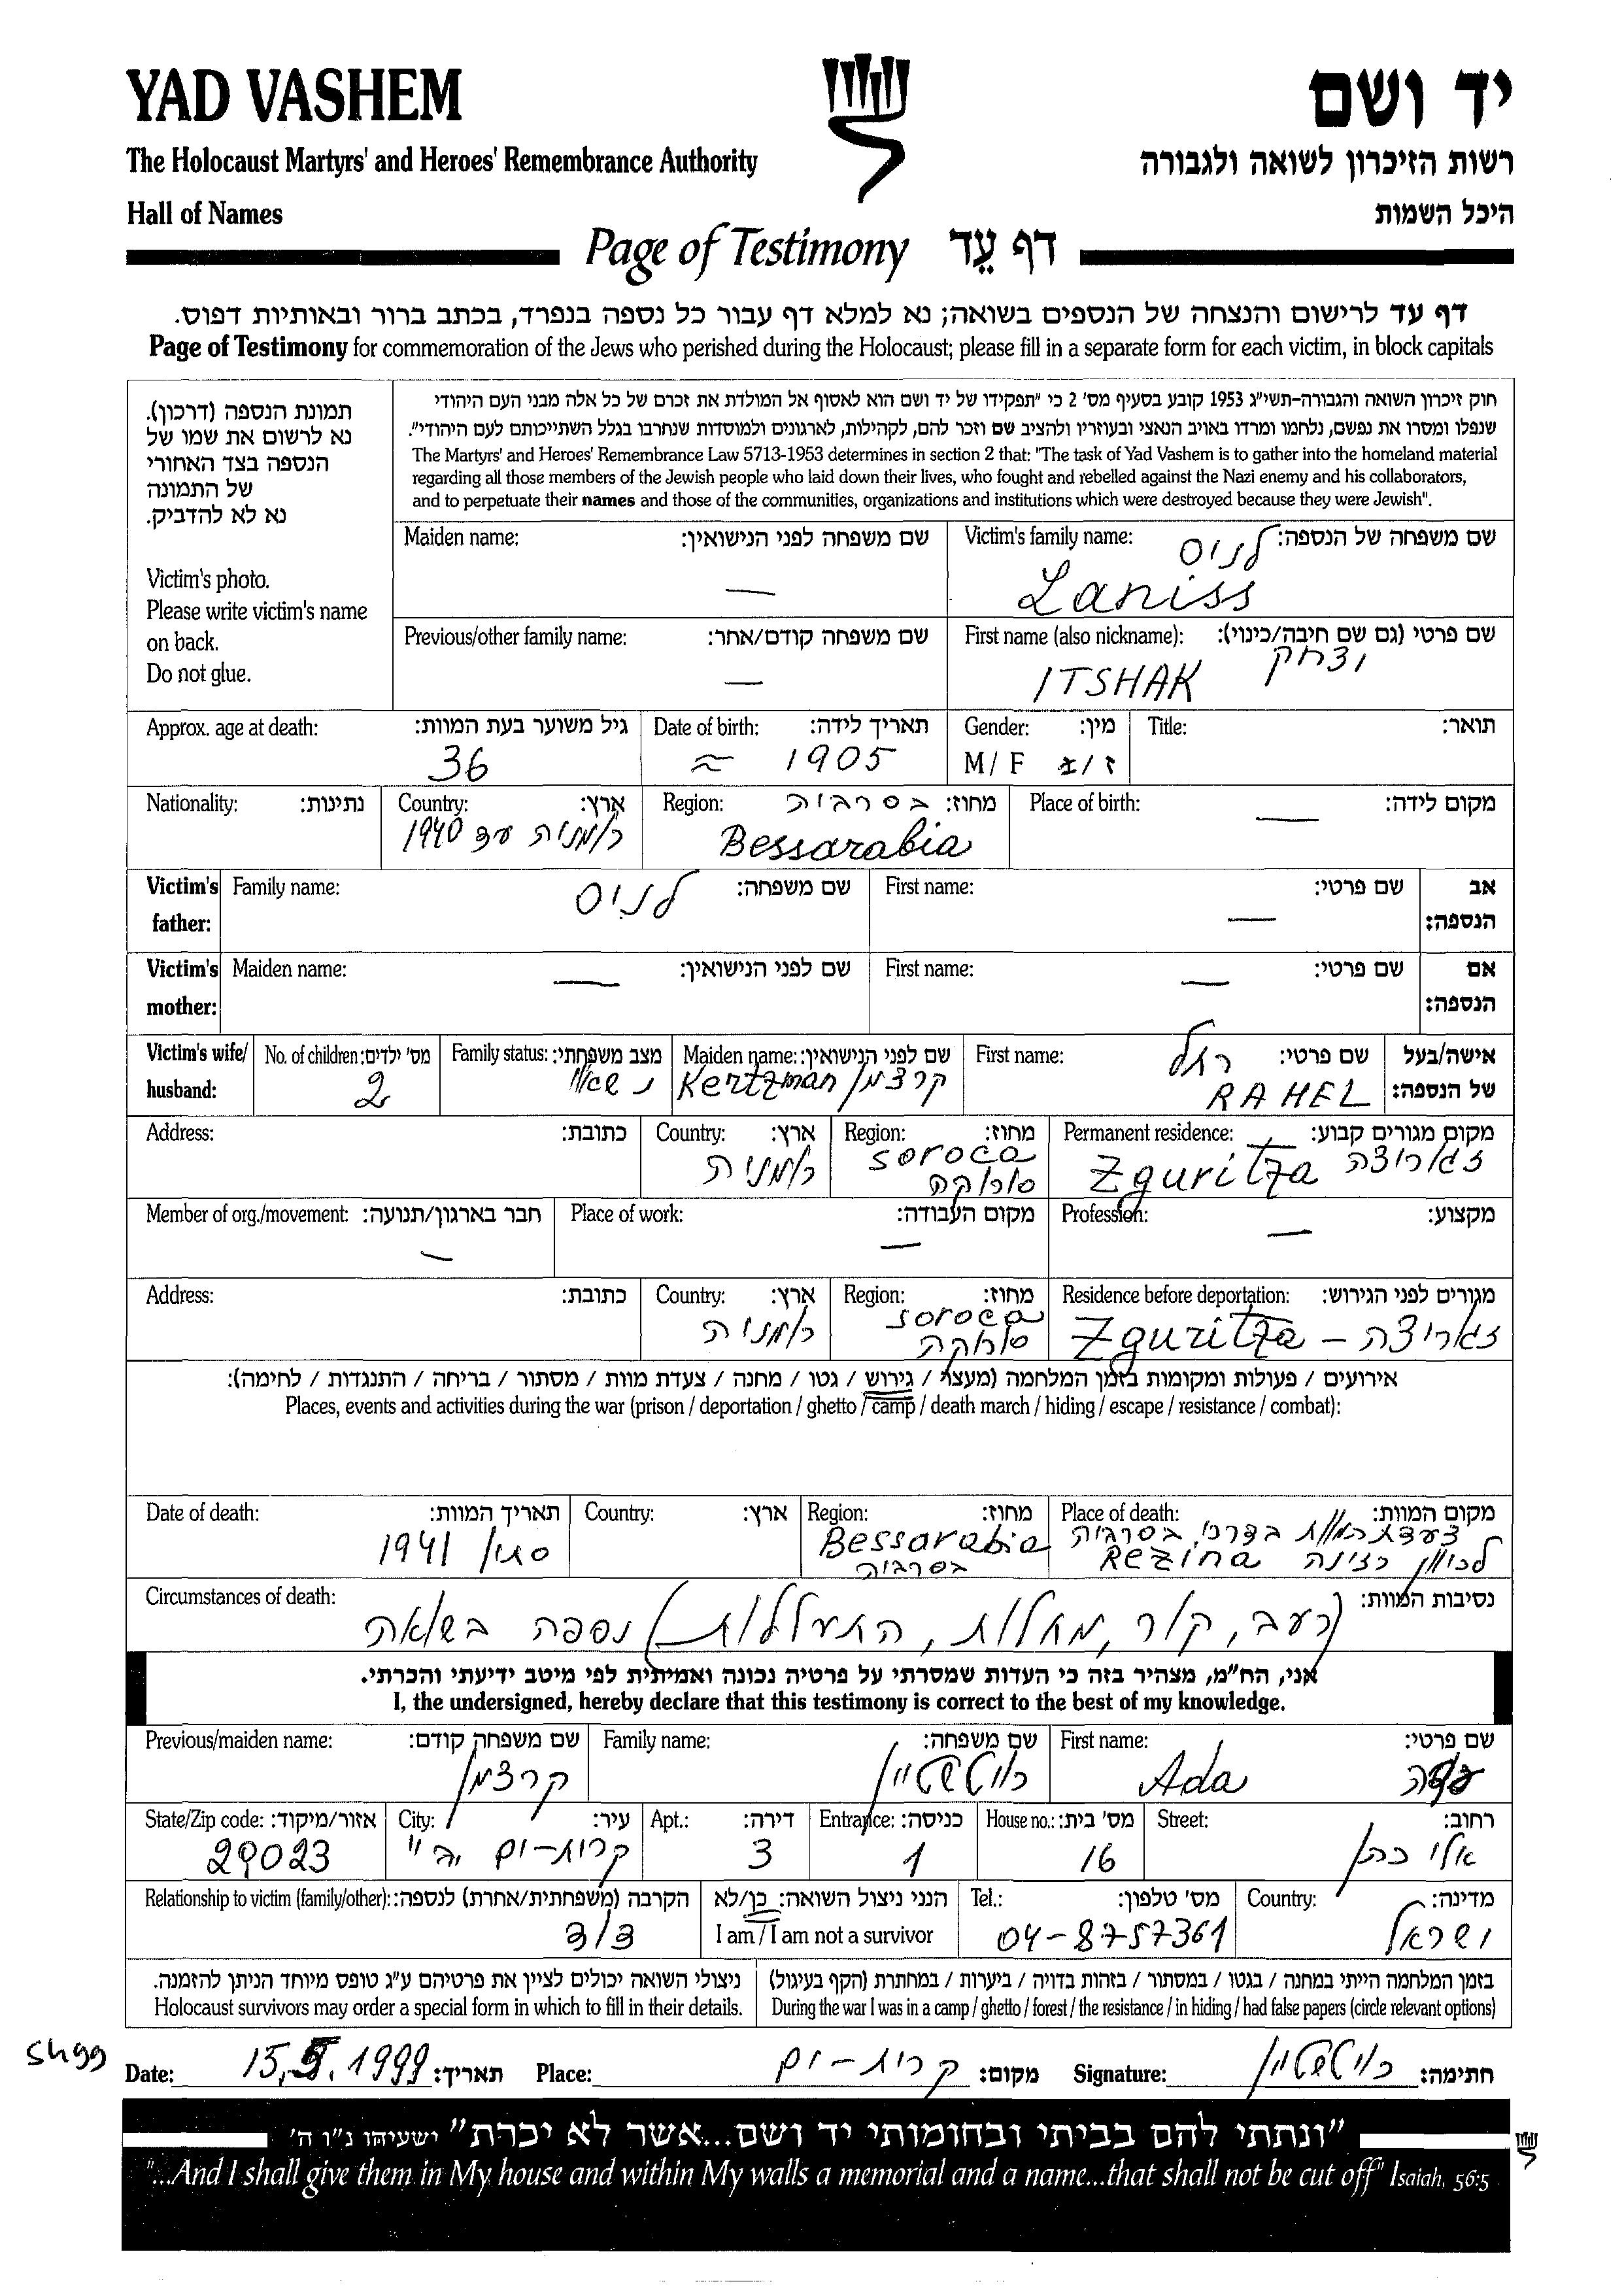 YAD VASHEM
יד ושם
The Holocaust Martyrs' and Heroes' Remembrance Authority
רשות הזיכרון לשואה ולגבורה
Hall of Names
היכל השמות
Page of Testimony דף עֵד
דף עד לרישום והנצחה של הנספים בשואה; נא למלא דף עבור כל נספה בנפרד, בכתב ברור ובאותיות דפוס.
Page of Testimony for commemoration of the Jews who perished during the Holocaust; please fill in a separate form for each victim, in block capitals
תמונת הנספה (דרכון).
נא לרשום את שמו של
הנספה בצד האחורי
של התמונה
נא לא להדביק.
Victim's photo.
Please write victim's name
on back.
Do not glue.
חוק זיכרון השואה והגבורה-תשי"ג 1953 קובע בסעיף מס' 2 כי "תפקידו של יד ושם הוא לאסוף אל המולדת את זכרם של כל אלה מבני העם היהודי
שנפלו ומסרו את נפשם, נלחמו ומרדו באויב הנאצי ובעוזריו ולהציב שם וזכר להם, לקהילות, לארגונים ולמוסדות שנחרבו בגלל השתייכותם לעם היהודי".
The Martyrs' and Heroes' Remembrance Law 5713-1953 determines in section 2 that: "The task of Yad Vashem is to gather into the homeland material
regarding all those members of the Jewish people who laid down their lives, who fought and rebelled against the Nazi enemy and his collaborators,
and to perpetuate their names and those of the communities, organizations and institutions which were destroyed because they were Jewish".
Victim's family name: שם משפחה של הנספה: לניס
Laniss
Maiden name: שם משפחה לפני הנישואין:
—
First name (also nickname): שם פרטי (גם שם חיבה/כינוי):
יצחק
ITSHAK
Previous/other family name: שם משפחה קודם/אחר:
—
Title: תואר:
Gender: מין:
M / F ז / נ
Date of birth: תאריך לידה:
≈ 1905
Approx. age at death: גיל משוער בעת המוות:
36
Place of birth: מקום לידה:
—
Region: מחוז: בסרביה
Bessarabia
Country: ארץ:
רומניה עד 1940
Nationality: נתינות:
Victim's father: אב הנספה:
First name: שם פרטי:
—
Family name: שם משפחה: לניס
Victim's mother: אם הנספה:
First name: שם פרטי:
—
Maiden name: שם לפני הנישואין:
—
Victim's wife/ husband: אישה/בעל של הנספה:
First name: שם פרטי: רחל
RAHEL
Maiden name: שם לפני הנישואין:
Kertzman קרצמן
Family status: מצב משפחתי:
נשוי
No. of children: מס' ילדים:
2
Permanent residence: מקום מגורים קבוע:
Zguritza זגוריצה
Region: מחוז:
Soroca
סורוקה
Country: ארץ:
רומניה
Address: כתובת:
Profession: מקצוע:
—
Place of work: מקום העבודה:
—
Member of org./movement: חבר בארגון/תנועה:
—
Residence before deportation: מגורים לפני הגירוש:
Zguritza – זגוריצה
Region: מחוז:
Soroca
סורוקה
Country: ארץ:
רומניה
Address: כתובת:
אירועים / פעולות ומקומות בזמן המלחמה (מעצר / גירוש / גטו / מחנה / צעדת מוות / מסתור / בריחה / התנגדות / לחימה):
Places, events and activities during the war (prison / deportation / ghetto / camp / death march / hiding / escape / resistance / combat):
Place of death: מקום המוות:
צעדת המוות בדרכי בסרביה
לכיוון רזינה Rezina
Region: מחוז:
Bessarabia
בסרביה
Country: ארץ:
Date of death: תאריך המוות:
סתיו 1941
Circumstances of death: נסיבות המוות:
(רעב, קור, מחלות, התעללות) נספה בשואה
אני, הח"מ, מצהיר בזה כי העדות שמסרתי על פרטיה נכונה ואמיתית לפי מיטב ידיעתי והכרתי.
I, the undersigned, hereby declare that this testimony is correct to the best of my knowledge.
First name: שם פרטי:
Ada עדה
Family name: שם משפחה:
Previous/maiden name: שם משפחה קודם:
קרצמן
Street: רחוב:
אלי כהן
House no.: מס' בית:
16
Entrance: כניסה:
1
Apt.: דירה:
3
City: עיר:
קרית-ים
State/Zip code: אזור/מיקוד:
29023
Country: מדינה:
ישראל
Tel.: מס' טלפון:
04-8757361
הנני ניצול השואה: כן/לא
I am / I am not a survivor
Relationship to victim (family/other): הקרבה (משפחתית/אחרת) לנספה:
דוד
בזמן המלחמה הייתי במחנה / בגטו / במסתור / בזהות בדויה / ביערות / במחתרת (הקף בעיגול)
During the war I was in a camp / ghetto / forest / the resistance / in hiding / had false papers (circle relevant options)
ניצולי השואה יכולים לציין את פרטיהם ע"ג טופס מיוחד הניתן להזמנה.
Holocaust survivors may order a special form in which to fill in their details.
Date: 15.5.1999 תאריך: Place: קרית-ים מקום: Signature: חתימה:
"ונתתי להם בביתי ובחומותי יד ושם...אשר לא יכרת" ישעיהו נ"ו ה'
"...And I shall give them in My house and within My walls a memorial and a name...that shall not be cut off" Isaiah, 56:5